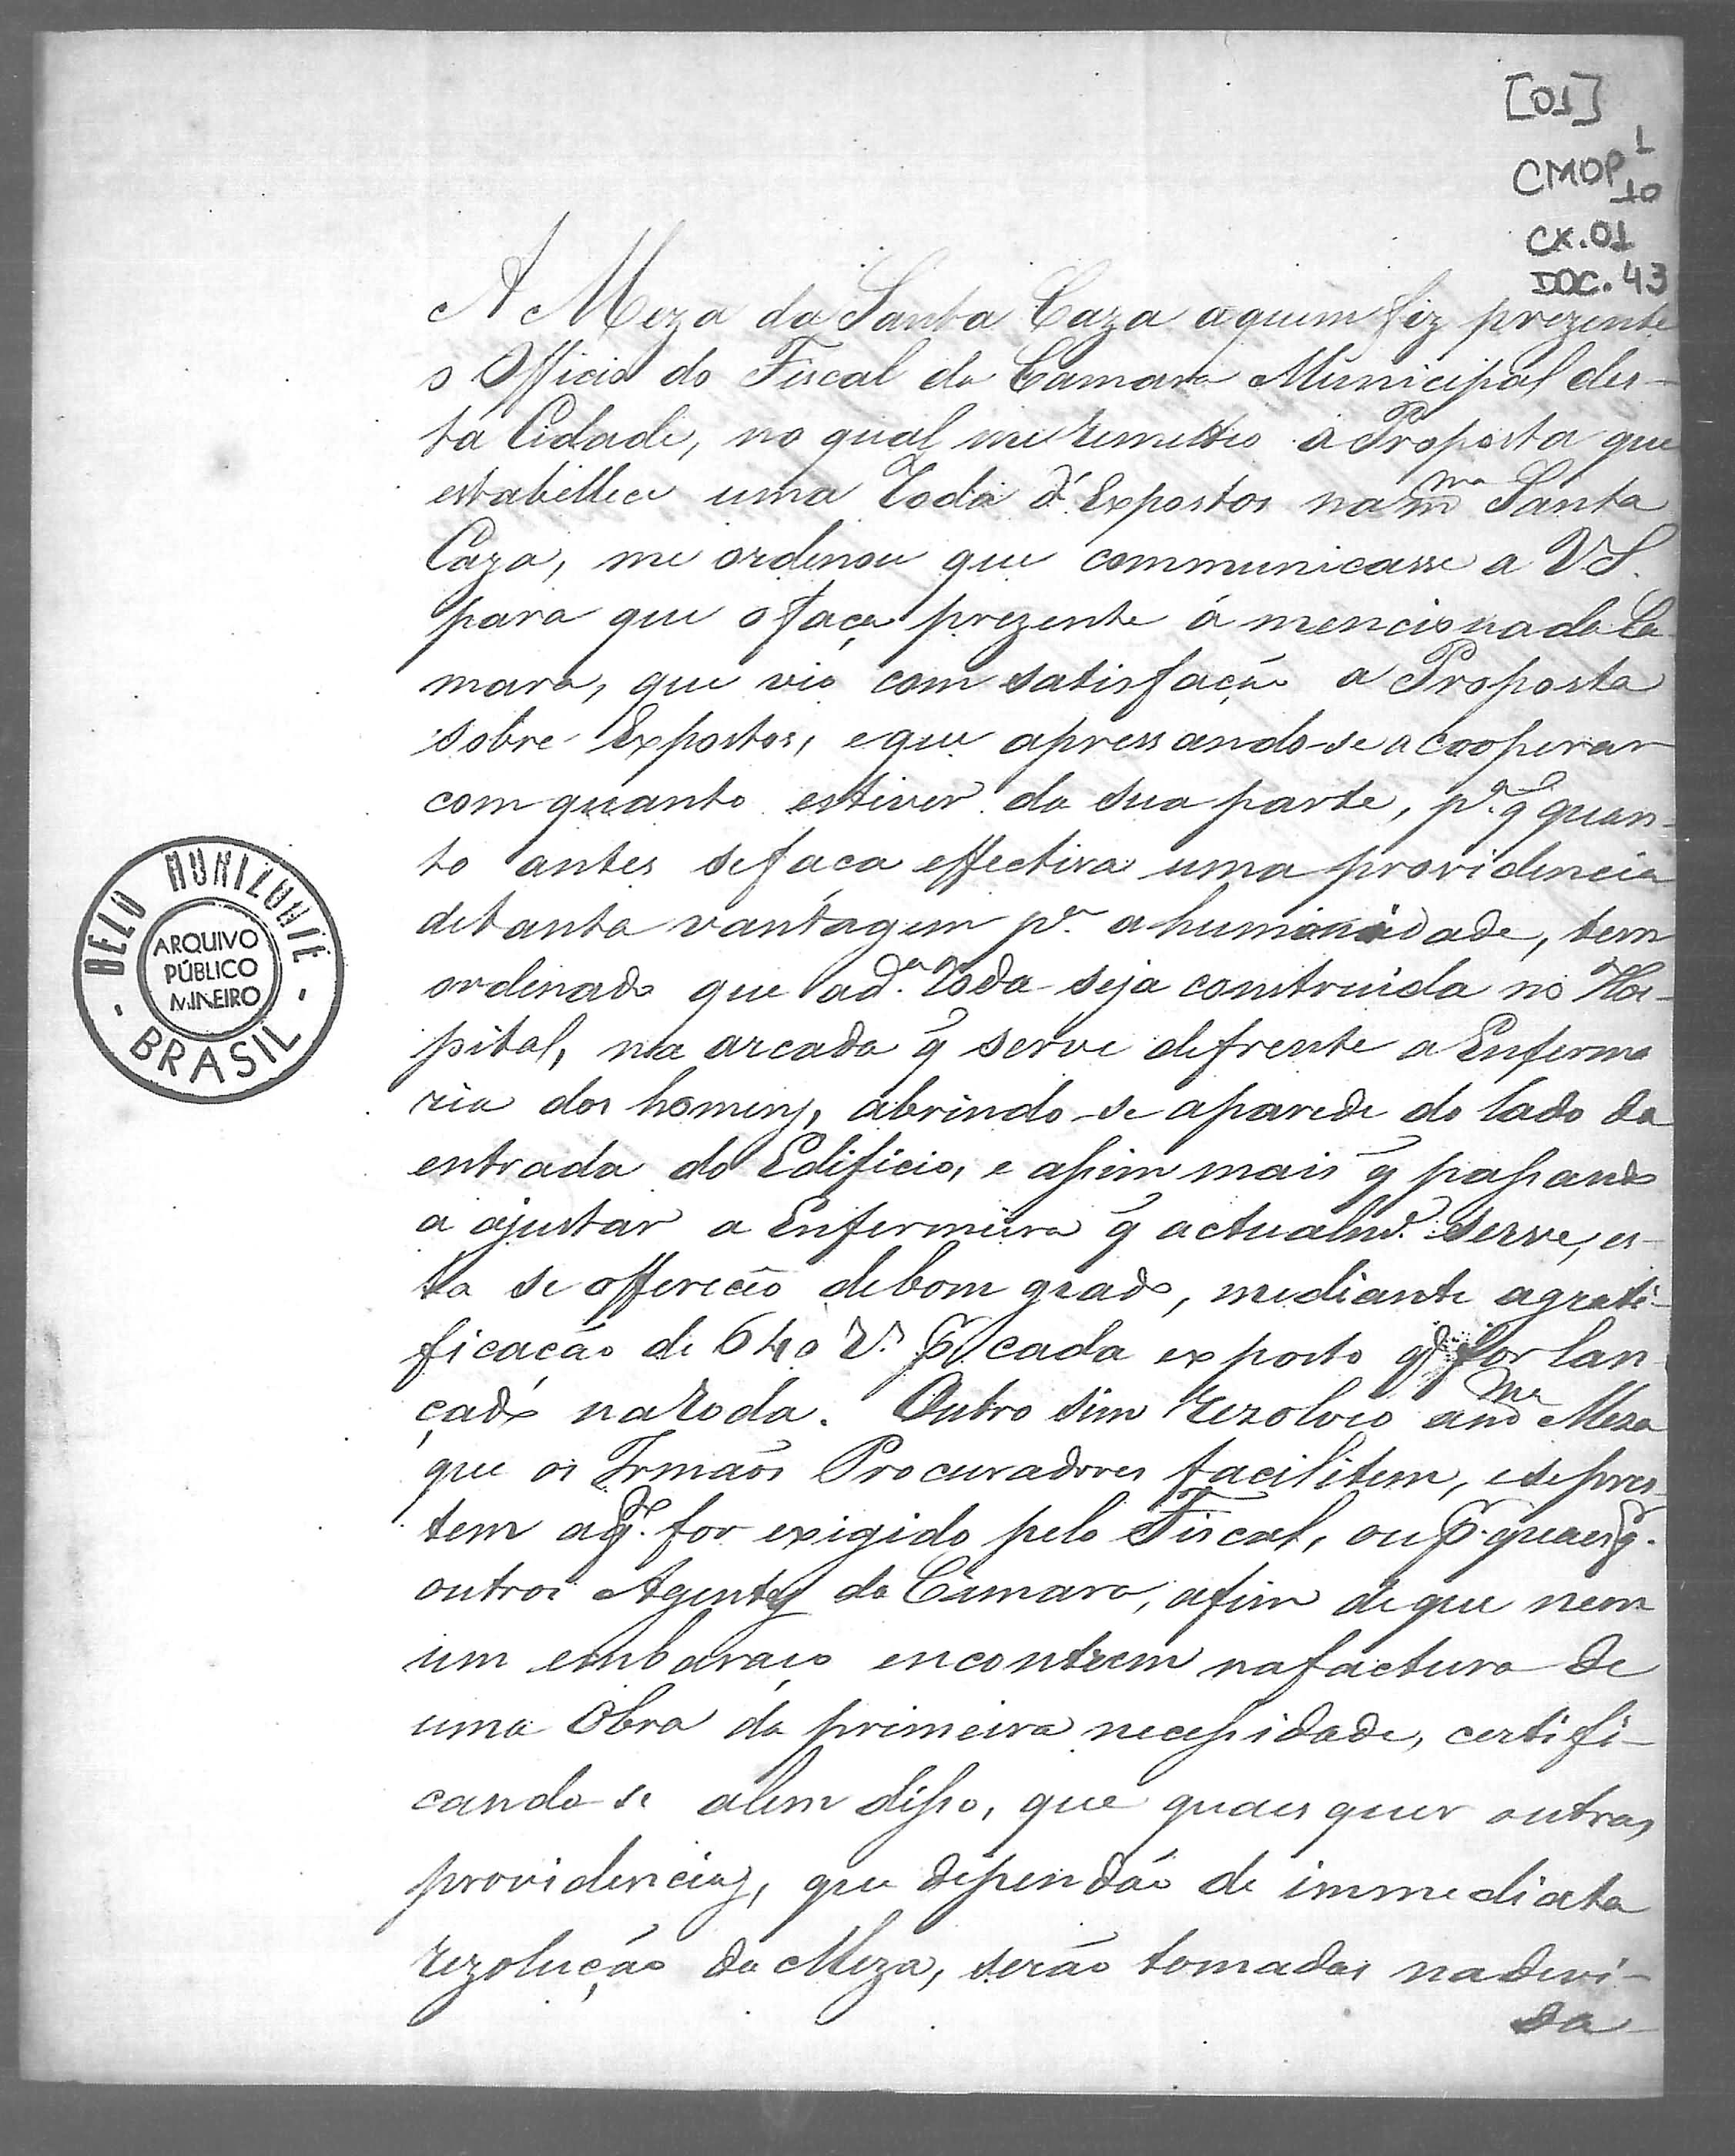 [01]
CMOP 1/10
CX.01
DOC. 43
A Meza da Santa Caza aquem fiz prezente
o Officio do Fiscal da Camara Municipal des-
ta Cidade, no qual me remetteo a Proposta que
estabellece uma Roda d'Expostos na m.ma Santa
Caza, me ordenou que communicasse a VS.
para que o faça prezente á mencionada Ca-
mara, que vio com satisfação a Proposta
sobre Expostos, e que apressando-se a cooperar
com quanto estiver da sua parte, p.a q̃ quan-
to antes sefaça effectiva uma providencia
detanta vantagem p.a a humanidade, tem
ordenado que a d.a Roda seja construida no Hos-
pital, na arcada q̃ serve defrente a Enferma
ria dos homens, abrindo-se aparede do lado da
entrada do Edificio, e assim mais q̃ passando
a ajustar a Enfermeira q̃ actualm.e serve, es-
ta se offereceo debom grado, mediante agrati-
ficação de 640 r.s p.r cada exposto q̃ for lan
çado naRoda. Outro sim rezolveo a m.ma Meza
que os Irmãos Procuradores facilitem, esepres
tem a q.to for exigido pelo Fiscal, ou p.r quaesq.r
outros Agentes da Camara, afim deque nem
um embaraço encontrem nafactura de
uma Obra da primeira necessidade, certifi-
cando se alem disso, que quaes quer outras
providencias, que dependão de immediata
rezolução da Meza, serão tomadas nadevi-
da
BELO HORIZONTE
ARQUIVO
PÚBLICO
MINEIRO
BRASIL